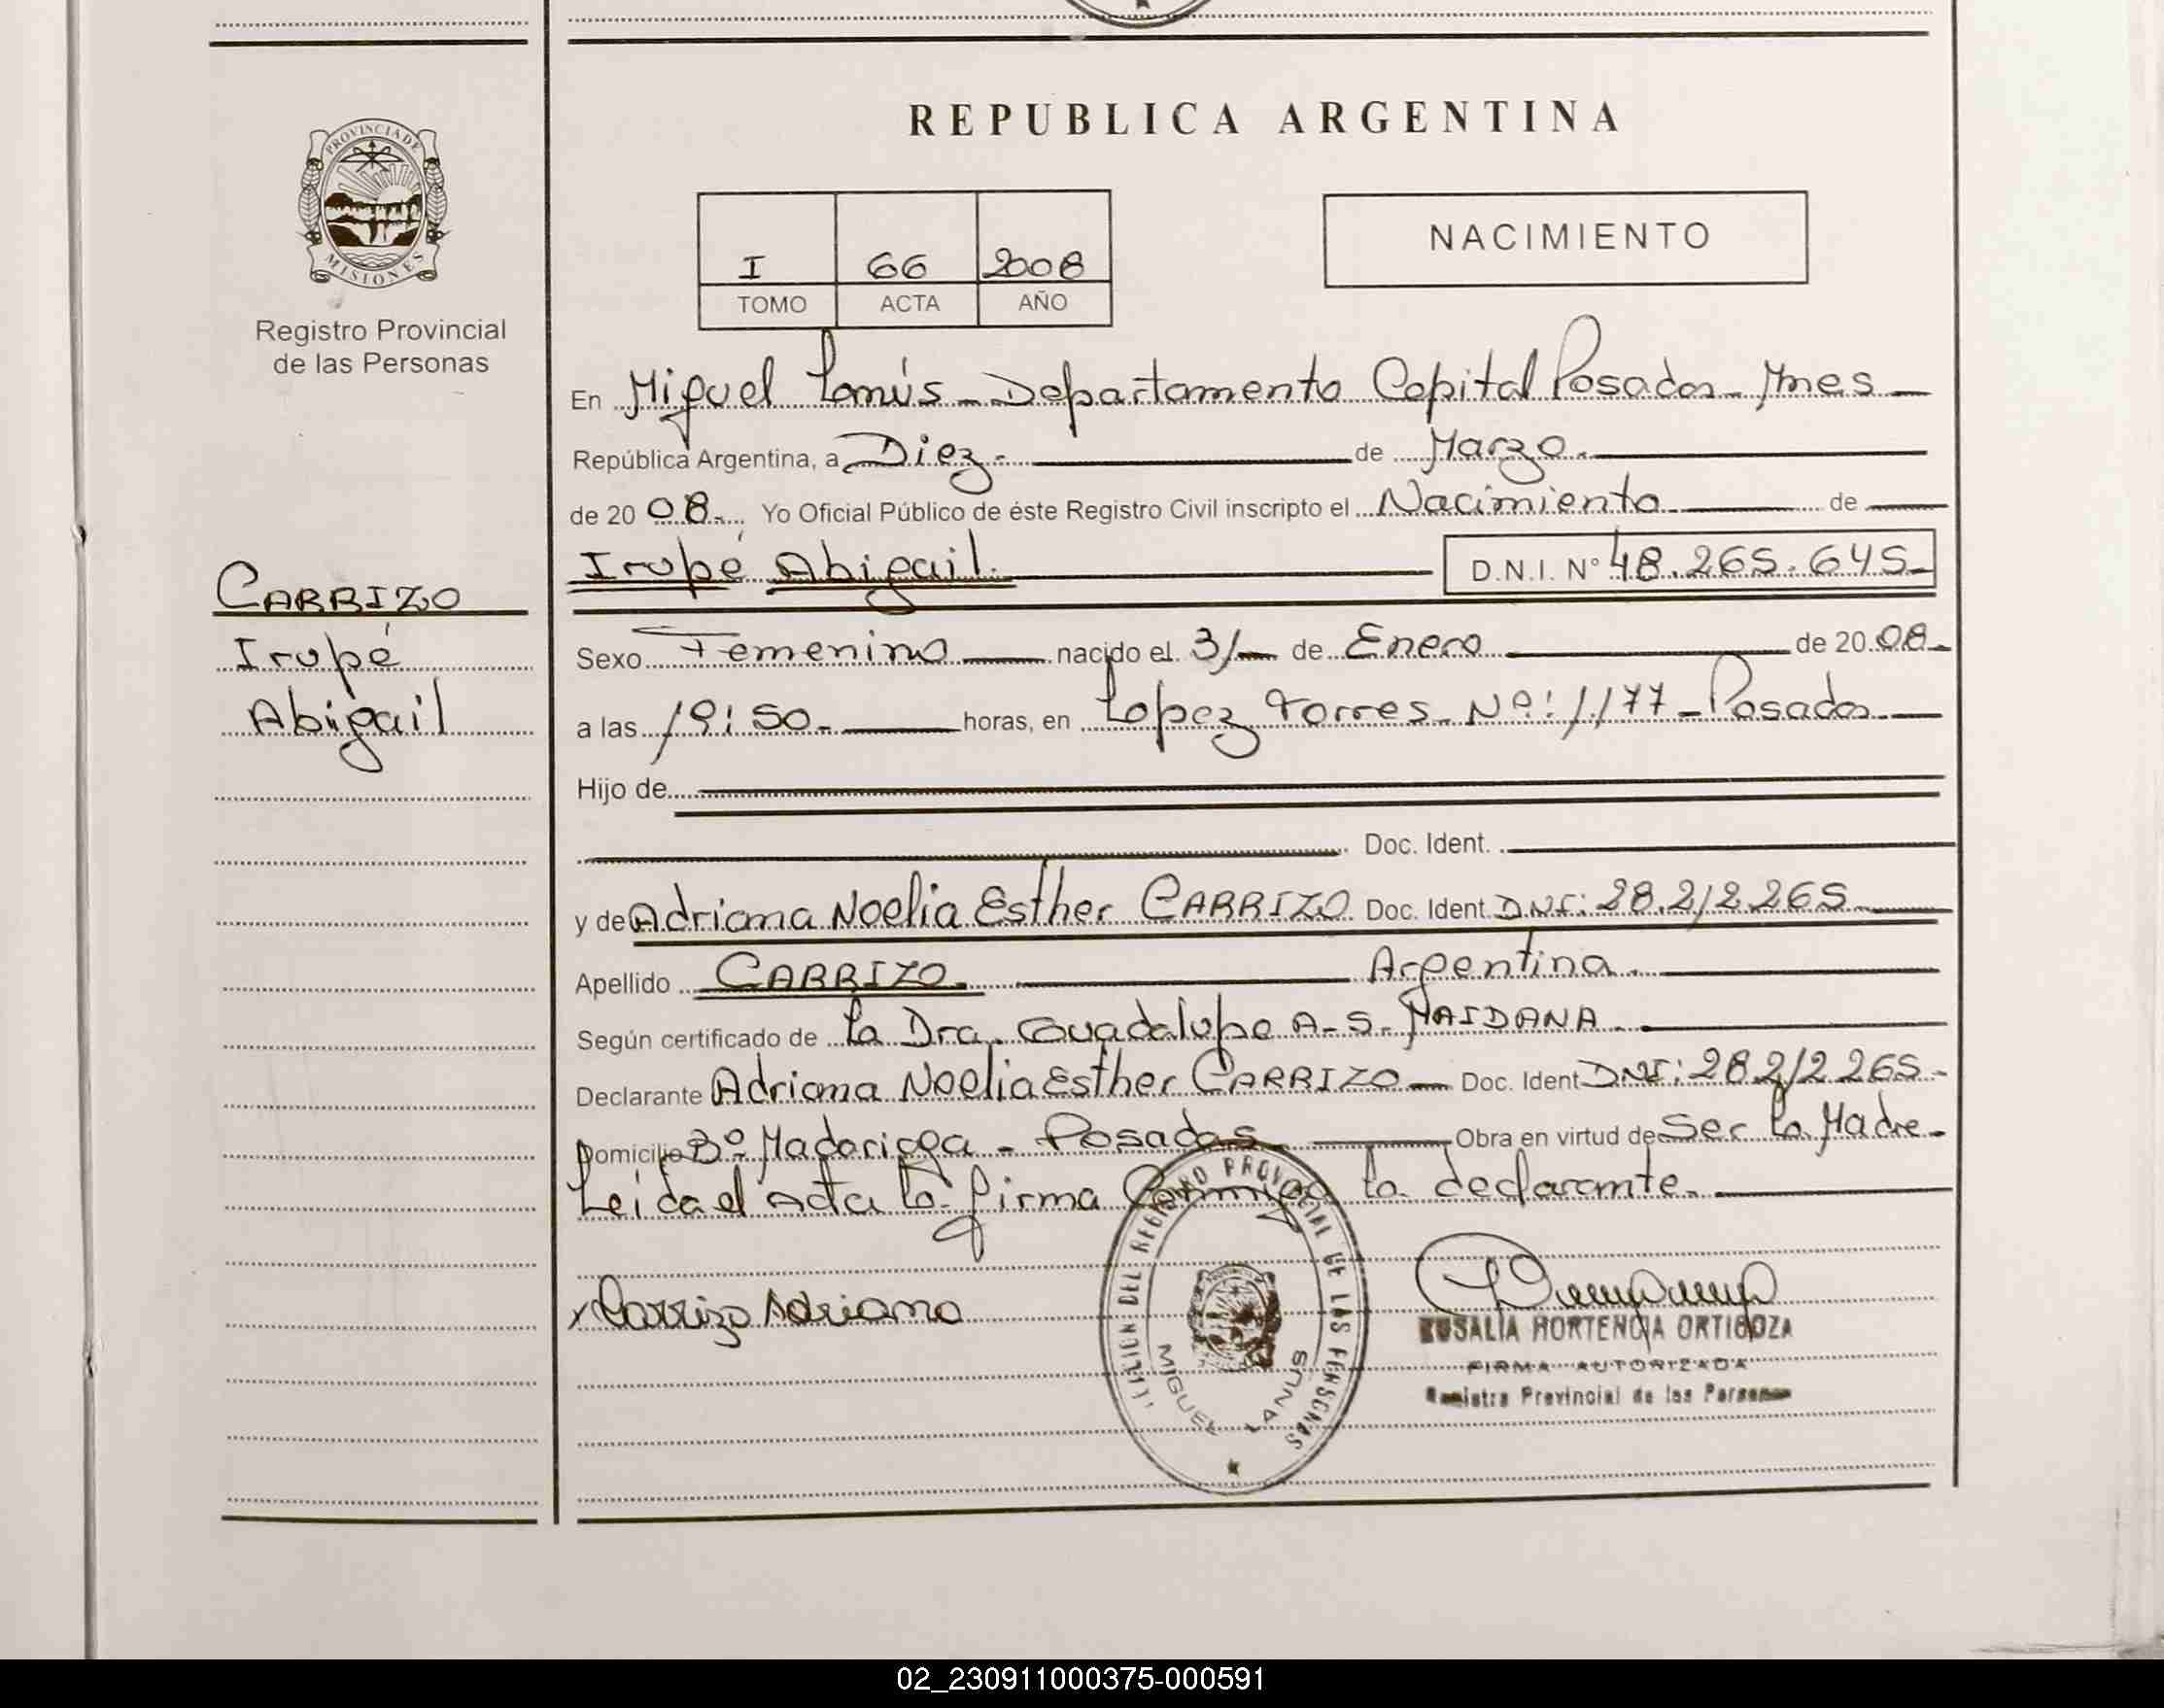 REPUBLICA ARGENTINA
PROVINCIA DE
MISIONES
Registro Provincial
de las Personas
I 66 2008
TOMO ACTA AÑO
NACIMIENTO
CARRIZO
Irupé
Abigail
En Miguel Lanús - Departamento Capital Posadas - Mnes
República Argentina, a Diez.- de Marzo.
de 20 08.- Yo Oficial Público de éste Registro Civil inscripto el Nacimiento de
Irupé Abigail. D.N.I. N° 48.265.645-
Sexo Femenino nacido el 31 de Enero de 20 08.-
a las 19:50.- horas, en Lopez Torres - Nº: 1177 - Posadas
Hijo de
Doc. Ident.
y de Adriana Noelia Esther CARRIZO Doc. Ident. DNI: 28.212.265
Apellido CARRIZO. Argentina.
Según certificado de La Dra. Guadalupe A-S- MAIDANA.
Declarante Adriana Noelia Esther CARRIZO - Doc. Ident DNI: 28212265-
Domicilio Bº Madariaga - Posadas Obra en virtud de Ser la Madre-
Leida el Acta la firma Conmigo la declarante.
x Carrizo Adriana
DEL REGISTRO PROVINCIAL DE LAS PERSONAS
MIGUEL LANUS
ROSALIA HORTENCIA ORTIGOZA
FIRMA AUTORIZADA
Registro Provincial de las Personas
02_230911000375-000591